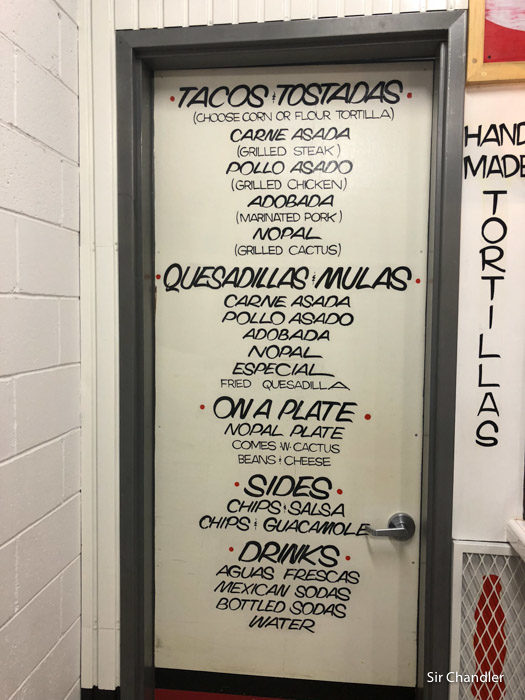 • TACOS & TOSTADAS •
(CHOOSE CORN OR FLOUR TORTILLA)
CARNE ASADA
(GRILLED STEAK)
POLLO ASADO
(GRILLED CHICKEN)
ADOBADA
(MARINATED PORK)
NOPAL
(GRILLED CACTUS)
• QUESADILLAS & MULAS •
CARNE ASADA
POLLO ASADO
ADOBADA
NOPAL
ESPECIAL
FRIED QUESADILLA
• ON A PLATE •
NOPAL PLATE
COMES W/ CACTUS
BEANS & CHEESE
• SIDES •
CHIPS & SALSA
CHIPS & GUACAMOLE
• DRINKS •
AGUAS FRESCAS
MEXICAN SODAS
BOTTLED SODAS
WATER
HAND
MADE
TORTILLAS
Sir Chandler